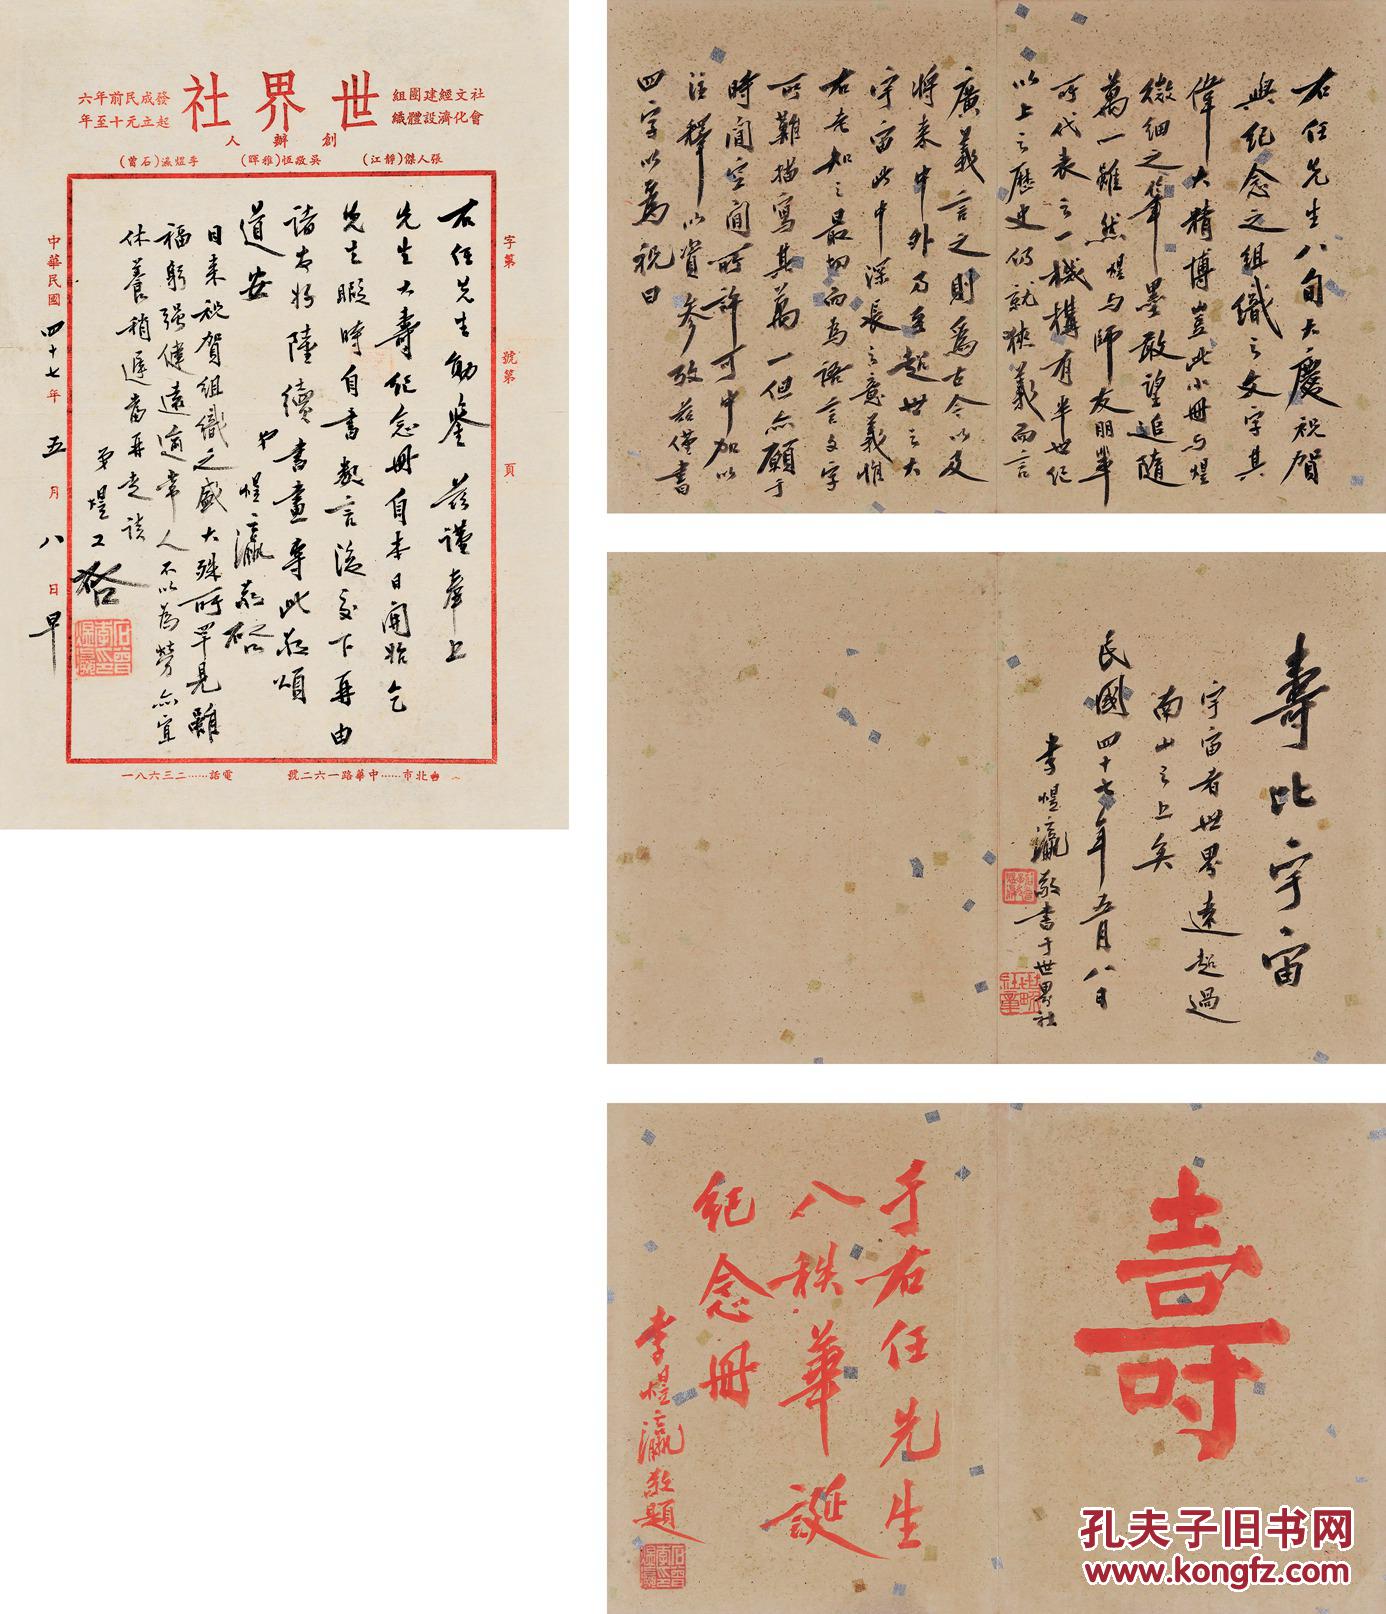 社會文化經濟建設團體組織
世界社
發起成立民元前十年至六年
創辦人
張人傑(靜江)
吳敬恆(稚暉)
李煜瀛(石曾)
字第
號第
頁
右任先生勛鑒 茲謹奉上
先生大壽紀念冊自本日開始乞
先生暇時自書數言後交下再由
諸友好陸續書畫專此敬頌
道安
弟煜瀛敬啓
日來祝賀組織之盛大殊所罕見雖
福躬强健遠逾常人不以為勞亦宜
休養稍遲當再走談
弟煜又啓
中華民國四十七年五月八日早
台北市……中華路一六二號
電話……二三六八一
右任先生八旬大慶祝賀
與紀念之組織之文字其
偉大精博豈此小冊与煜
微細之筆墨敢望追隨
萬一雖然煜与師友朋輩
所代表之一機構有半世紀
以上之歷史仍就狹義而言
廣義言之則為古今以及
將來中外乃至超世之大
宇宙此中深長之意義惟
右老知之最切而為語言文字
所難描寫其萬一但亦願于
時間空間所許可中加以
注釋以資參攷茲僅書
四字以為祝曰
壽比宇宙
宇宙者世界遠超過
南山之上矣
民國四十七年五月八日
李煜瀛敬書于世界社
壽
于右任先生
八秩華誕
紀念冊
李煜瀛敬題
孔夫子旧书网
www.kongfz.com